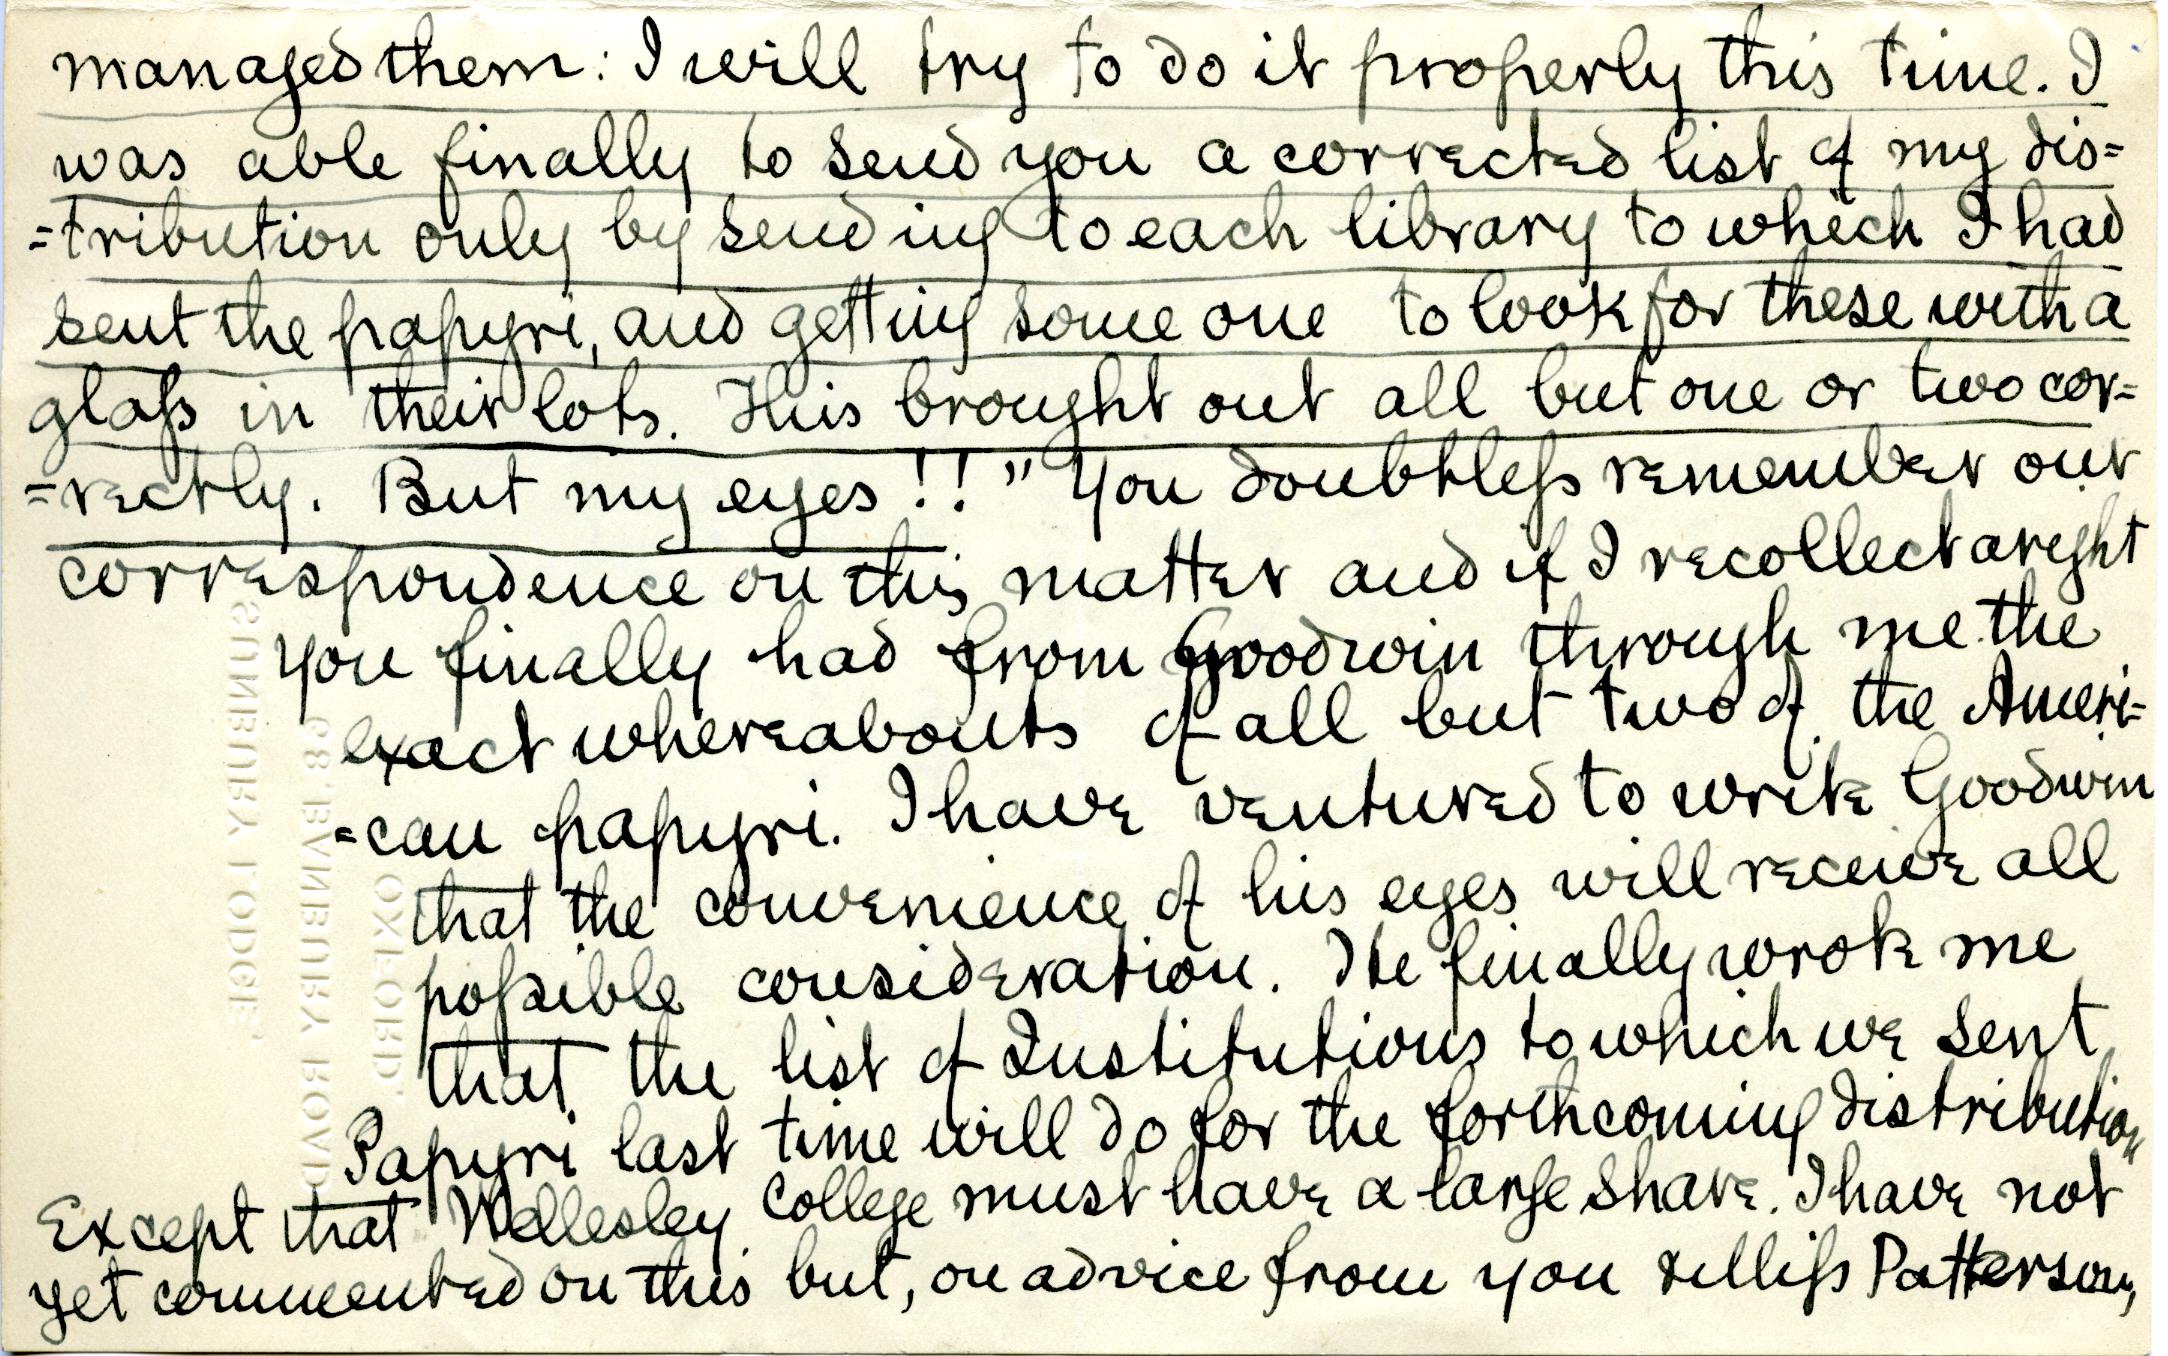 managed them: I will try to do it properly this time. I
was able finally to send you a corrected list of my dis=
=tribution only by sending to each library to which I had
sent the papyri, and getting some one to look for these with a
glaſs in their lots. This brought out all but one or two cor=
=rectly. But my eyes!!" You doubtleſs remember our
correspondence on this matter and if I recollect aright
you finally had from Goodwin through me the
exact whereabouts of all but two of the Ameri=
=can papyri. I have ventured to write Goodwin
that the convenience of his eyes will receive all
poſsible consideration. He finally wrote me
that the list of Institutions to which we sent
Papyri last time will do for the forthcoming distribution
Except that Wellesley College must have a large share. I have not
yet commented on this but, on advice from you & Miſs Patterson,
SUNBURY LODGE,
98, BANBURY ROAD,
OXFORD.